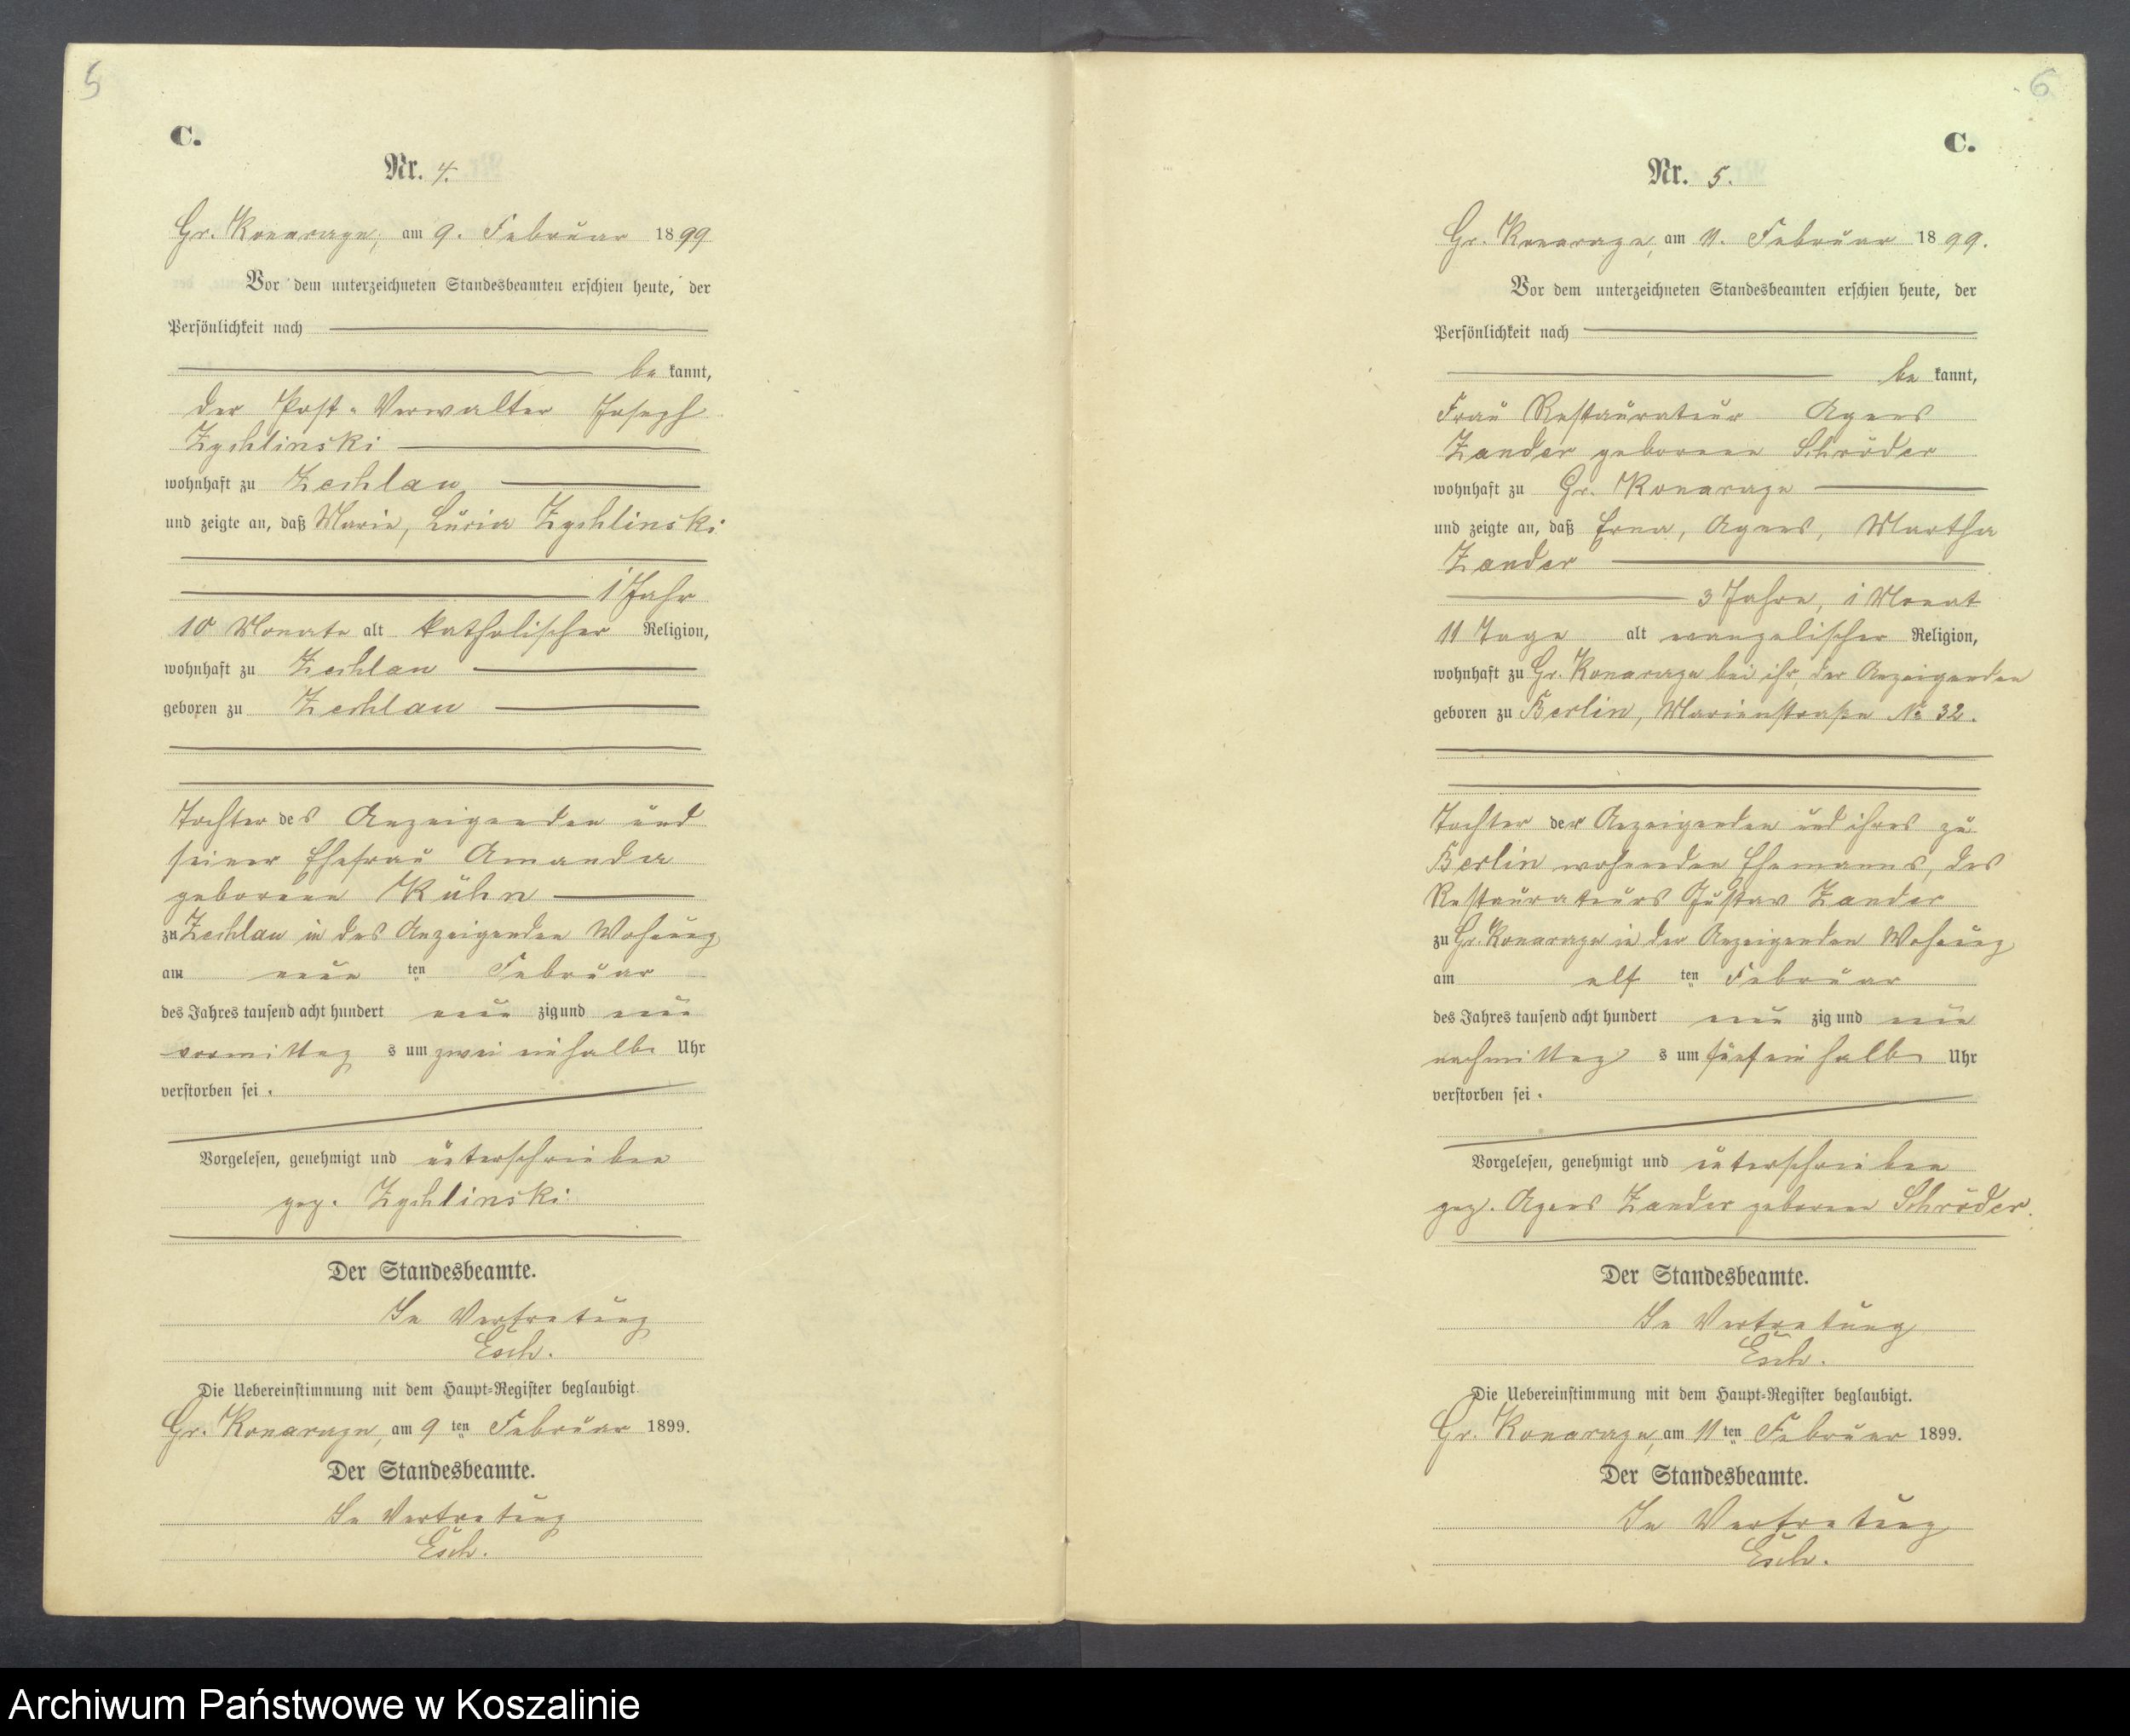 5
C.
Nr. 4.
Gr. Konarzyn, am 9. Februar 1899
Vor dem unterzeichneten Standesbeamten erschien heute, der
Persönlichkeit nach
be kannt,
der Post-Verwalter Joseph
Zychlinski
wohnhaft zu Zechlau
und zeigte an, daß Marie, Lucia Zychlinski
1 Jahr
10 Monate alt katholischer Religion,
wohnhaft zu Zechlau
geboren zu Zechlau
Tochter des Anzeigenden und
seiner Ehefrau Amanda
geborene Kühn
zu Zechlau in des Anzeigenden Wohnung
am neun ten Februar
des Jahres tausend acht hundert neun zig und neun
vormittag s um zwei einhalb Uhr
verstorben sei.
Vorgelesen, genehmigt und unterschrieben
gez. Zychlinski
Der Standesbeamte.
In Vertretung
Esch.
Die Uebereinstimmung mit dem Haupt-Register beglaubigt
Gr. Konarzyn, am 9 ten Februar 1899.
Der Standesbeamte.
In Vertretung
Esch.
6
C.
Nr. 5.
Gr. Konarzyn, am 11. Februar 1899.
Vor dem unterzeichneten Standesbeamten erschien heute, der
Persönlichkeit nach
be kannt,
Frau Restaurateur Agnes
Zander geborene Schröder
wohnhaft zu Gr. Konarzyn
und zeigte an, daß Erna, Agnes, Martha
Zander
3 Jahre, 1 Monat
11 Tage alt evangelischer Religion,
wohnhaft zu Gr. Konarzyn bei ihr, der Anzeigenden
geboren zu Berlin, Marienstraße No 32.
Tochter der Anzeigenden und ihres zu
Berlin wohnenden Ehemanns, des
Restaurateurs Gustav Zander
zu Gr. Konarzyn in der Anzeigenden Wohnung
am elf ten Februar
des Jahres tausend acht hundert neun zig und neun
nachmittag s um fünf ein halb Uhr
verstorben sei.
Vorgelesen, genehmigt und unterschrieben
gez. Agnes Zander geborene Schröder.
Der Standesbeamte.
In Vertretung
Esch.
Die Uebereinstimmung mit dem Haupt-Register beglaubigt.
Gr. Konarzyn, am 11 ten Februar 1899.
Der Standesbeamte.
In Vertretung
Esch.
Archiwum Państwowe w Koszalinie